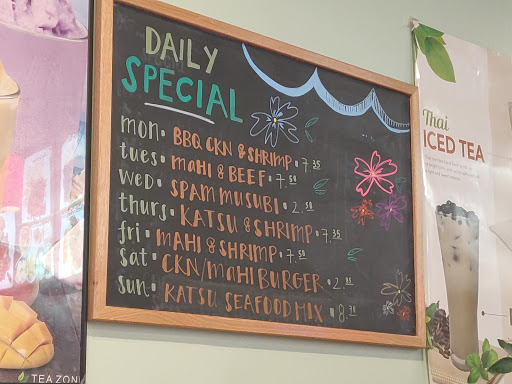 DAILY
SPECIAL
mon• BBQ CKN & SHRIMP • 7.35
tues• MAHI & BEEF • 7.50
wed• SPAM MUSUBI • 2.50
thurs• KATSU & SHRIMP • 7.35
fri• MAHI & SHRIMP • 7.50
sat• CKN/MAHI BURGER • 2.85
sun• KATSU SEAFOOD MIX • 8.70
Thai
ICED TEA
TEA ZON